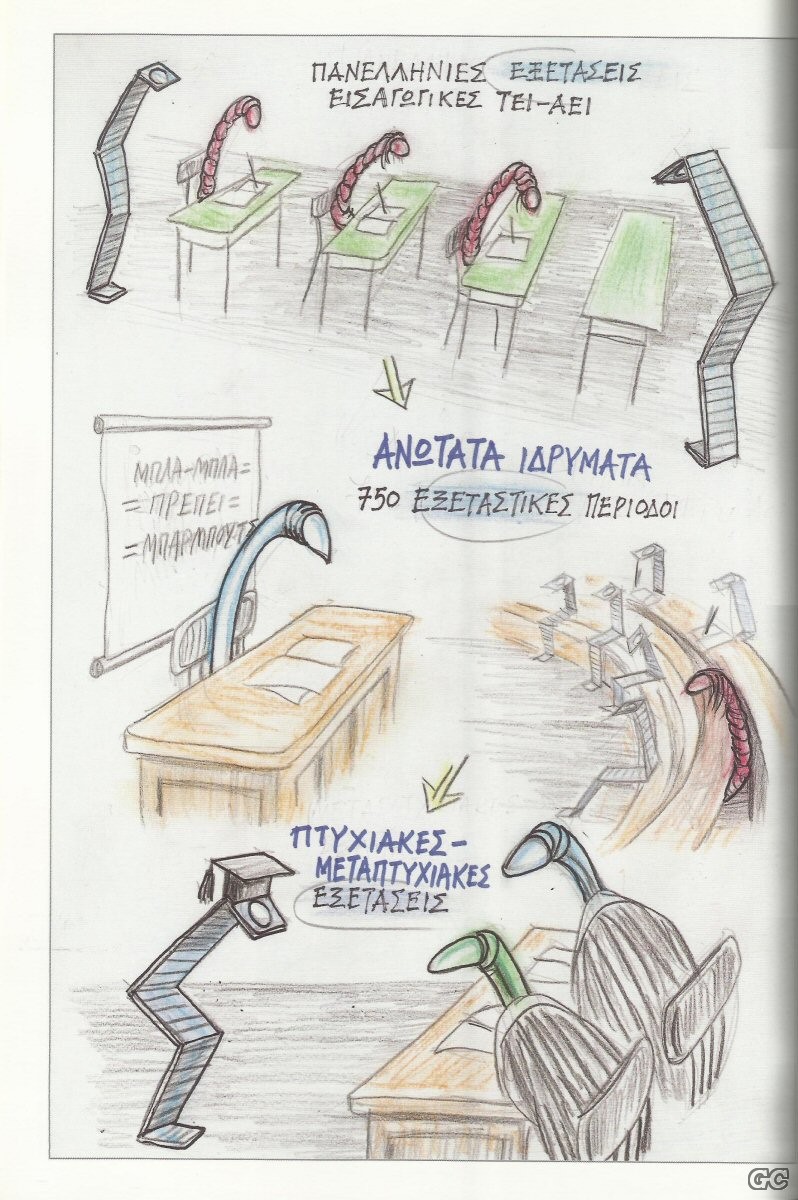 ΠΑΝΕΛΛΗΝΙΕΣ ΕΞΕΤΑΣΕΙΣ
ΕΙΣΑΓΩΓΙΚΕΣ ΤΕΙ-ΑΕΙ
ΑΝΩΤΑΤΑ ΙΔΡΥΜΑΤΑ
750 ΕΞΕΤΑΣΤΙΚΕΣ ΠΕΡΙΟΔΟΙ
ΜΠΛΑ-ΜΠΛΑ=
=ΠΡΕΠΕΙ=
=ΜΠΑΡΜΠΟΥΤΣ
ΠΤΥΧΙΑΚΕΣ-
ΜΕΤΑΠΤΥΧΙΑΚΕΣ
ΕΞΕΤΑΣΕΙΣ
GC